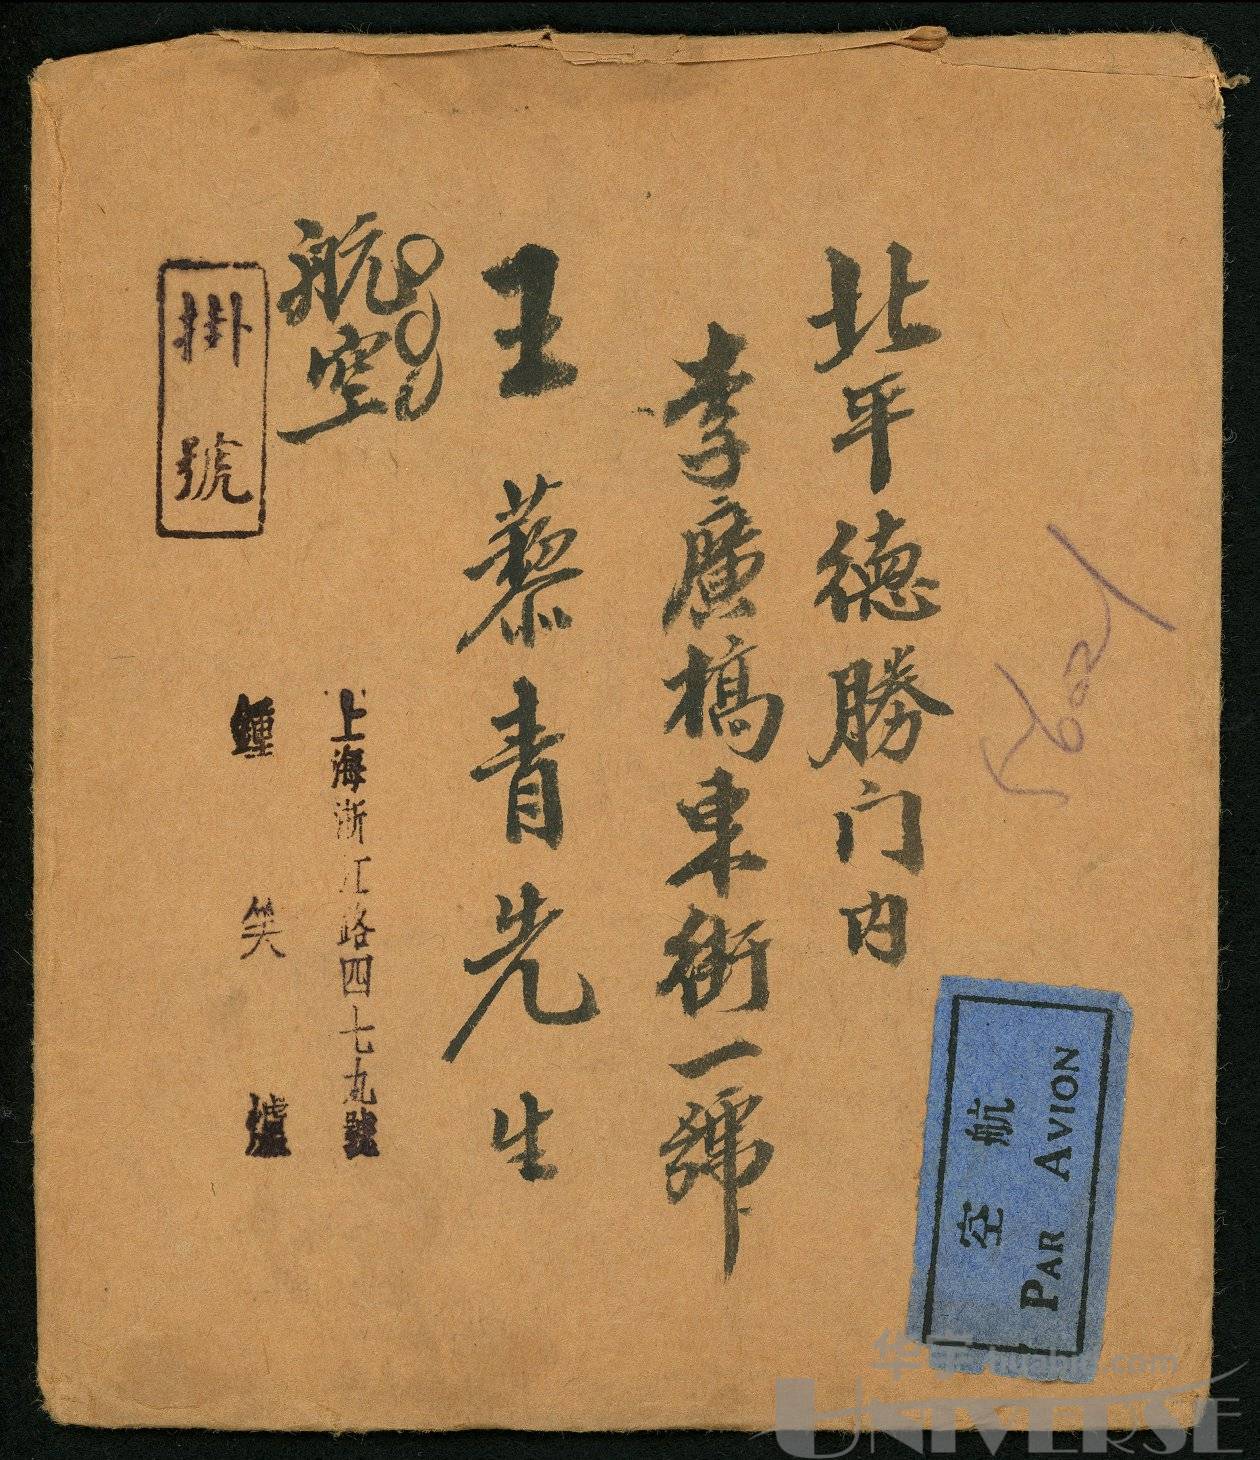 北平德勝门内
李廣橋東街一號
王藜青先生
航空
掛號
上海浙江路四七九號
鍾笑爐
5602
航空
PAR AVION
华宇 huabid.com
UNIVERSE